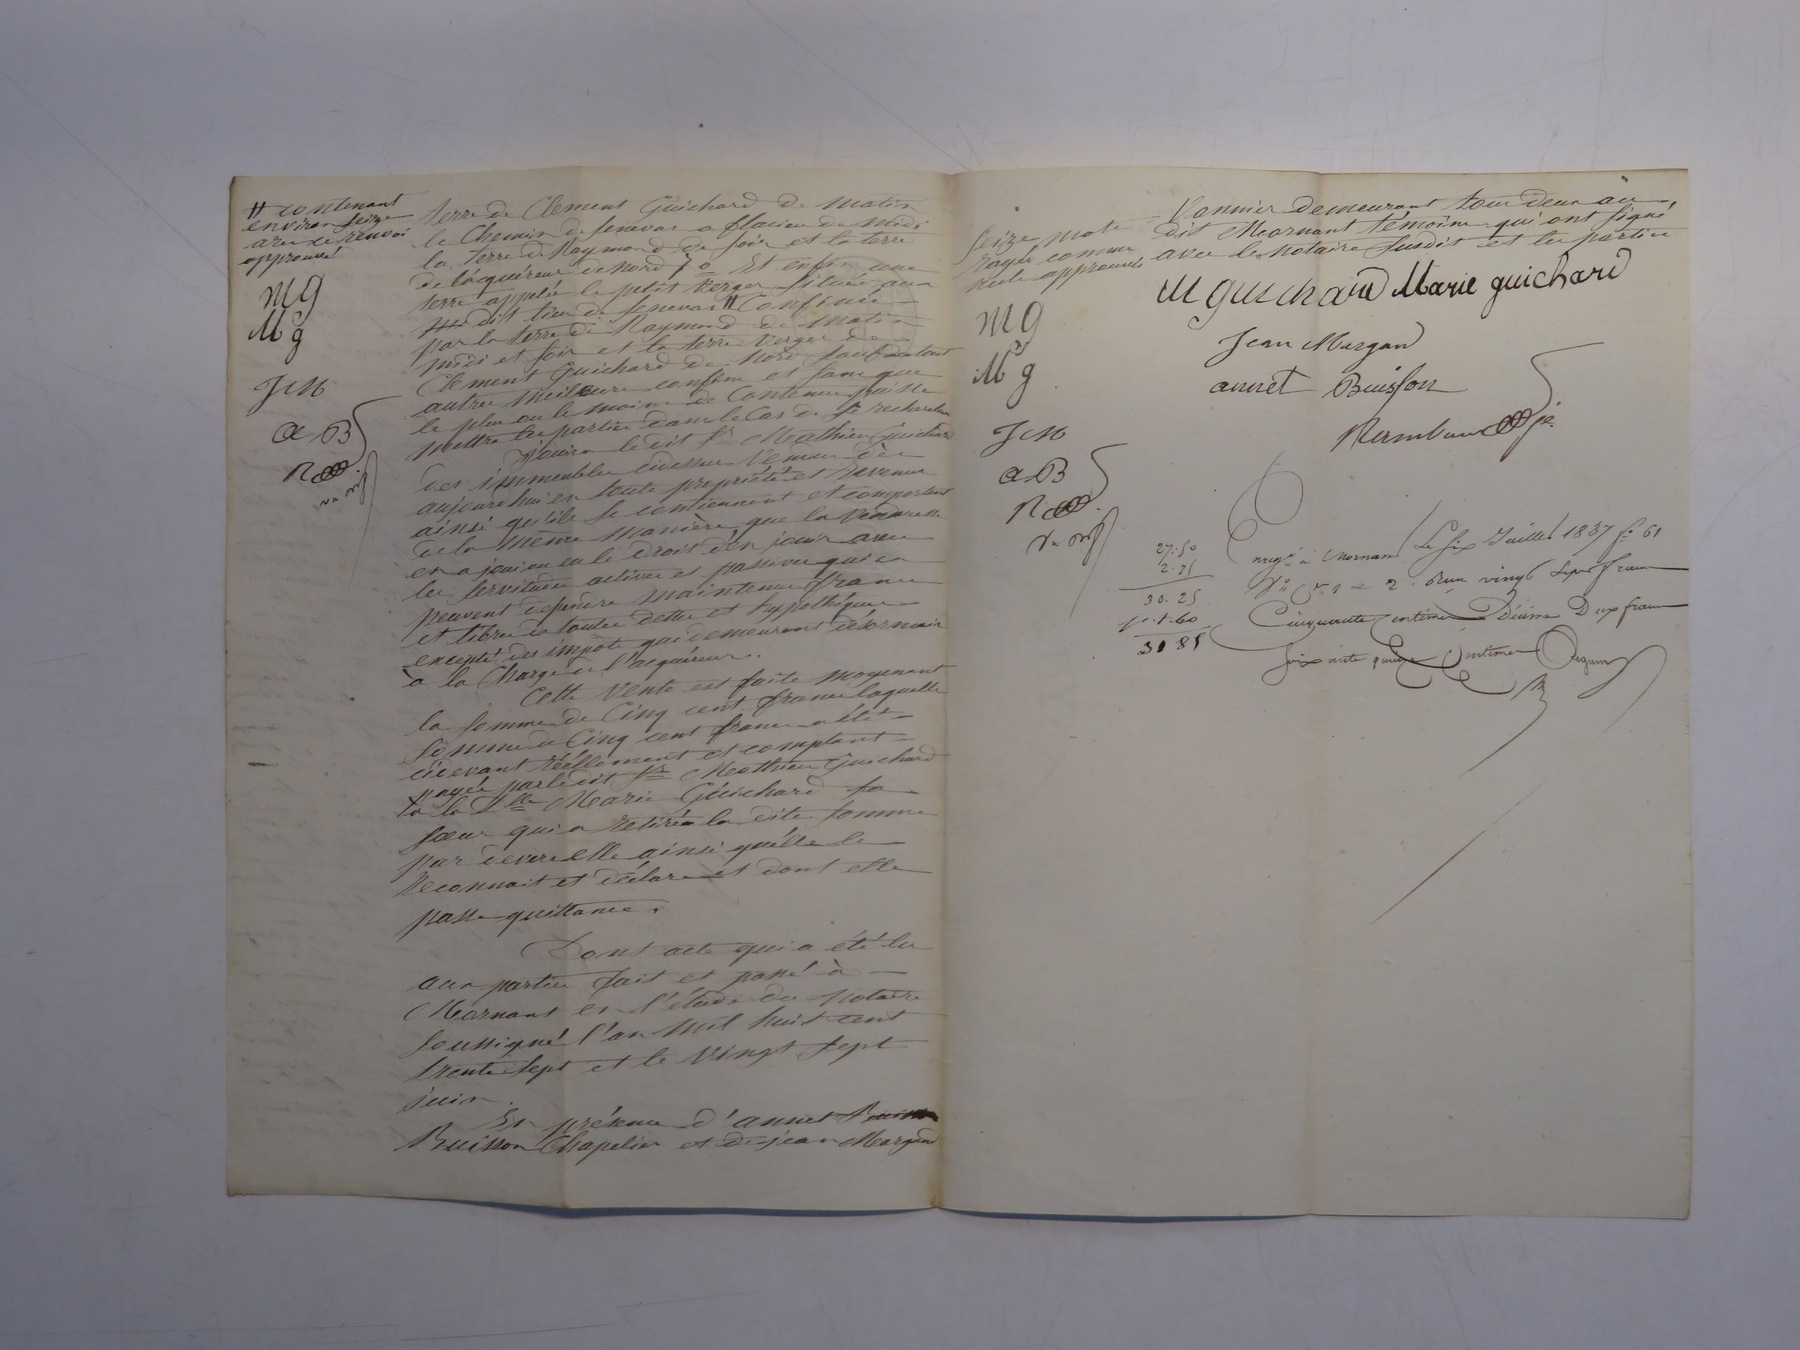 # contenant
environ seize
ares renvoi
approuvé
MG
Mg
JM
AB
R
terre de Clement Guichard de matin
le Chemin de Senevas de midi
la terre de Raymond de soir et la terre
de l'aquéreur de nord 7o Et enfin une
terre appelée le petit Verger située au
dit lieu de Senevas # Confinée
par la terre de Raymond de matin
midi et soir et la terre verger de
Clement Guichard de nord sauf de tout
autres meilleurs confins et sans que
le plus ou le moins de Contenue puisse
mettre les parties dans le Cas de se rechercher
Jouira le dit Sr Mathieu Guichard
des immeubles cidessus Vendus dès
aujourdhui en toute propriété et revenus
ainsi qu'ils se contiennent et comportent
de la même manière que la Venderesse
en a joui ou eu le droit d'en jouir avec
les servitudes actives et passives qui en
peuvent dependre maintenus francs
et libres de toutes dettes et hypothèques
excepté des impôts qui demeurent désormais
à la Charge de l'acquéreur.
Cette Vente est faite moyenant
la somme de Cinq cent francs laquelle
somme de Cinq cent francs a été
cidevant réellement et comptant
payée par le dit Sr Mathieu Guichard
à la Dlle Marie Guichard sa
sœur qui a retirée la dite somme
par devers elle ainsi quelle le
reconnait et déclare et dont elle
passe quittance.
Dont acte qui a été lu
aux parties fait et passé à
Mornant en l'étude du notaire
soussigné l'an mil huit cent
trente sept et le vingt sept
juin.
En présence d'annet
Buisson Chapelier et de jean Margand
seize mots
rayés comme
nuls approuvés
MG
Mg
JM
AB
R
Vannier demeurant tous deux au
dit Mornant témoins qui ont signé
avec le notaire susdit et les parties
M guichard Marie guichard
Jean Margand
annet Buisson
27.50
2.75
30.25
1.60
31 85
Enregé à Mornant Le six Juillet 1837 fo 61
Vo Ce 1 = 2. Reçu vingt sept francs
Cinquante Centimes Décime Deux francs
soixante quinze Centimes